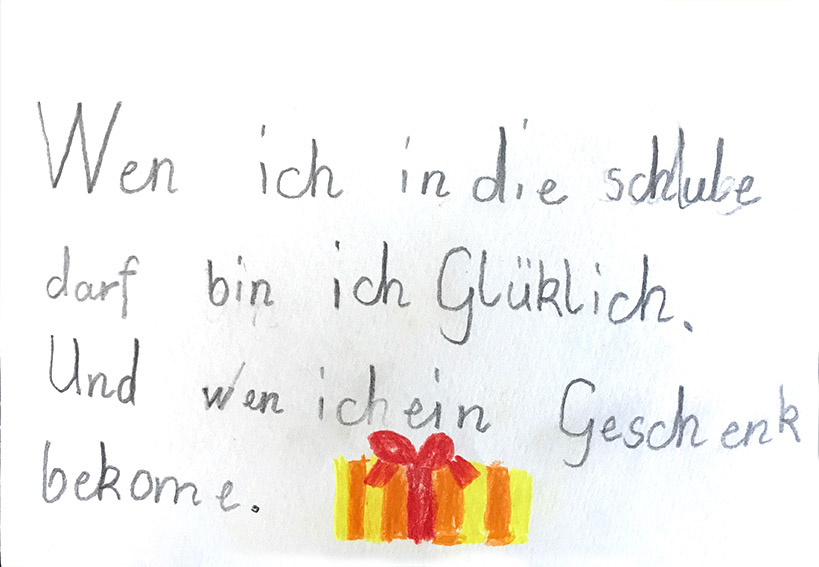 Wen ich in die schlube
darf bin ich Glüklich.
Und wen ich ein Geschenk
bekome.